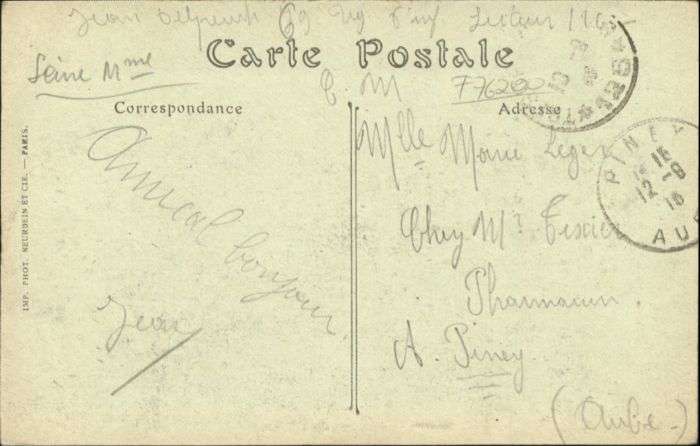 Jean 69 8 inf Secteur 116
Carte Postale
Seine Mme
F. M
F76200
Correspondance
Adresse
Amical bonjour
Jean
Mlle Marie Leger
Chez Mr Texier
Pharmacien
A. Piney
(Aube)
PINEY
12 -9
16
AU
154
IMP. PHOT. NEURDEIN ET CIE. — PARIS.